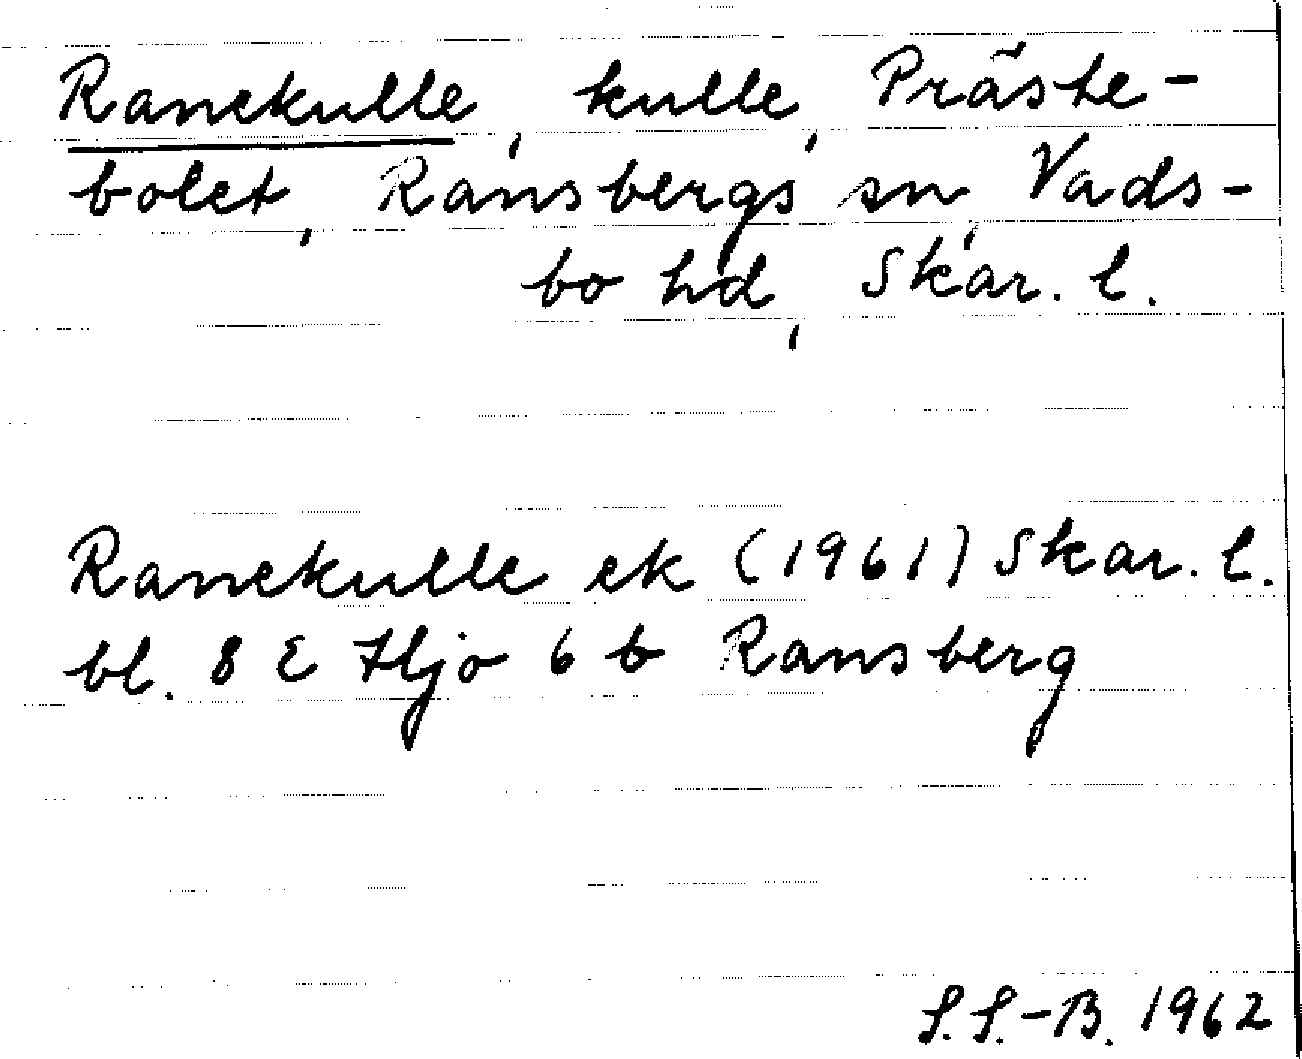 Ranekulle, kulle, Präste-
bolet, Ransbergs sn, Vads-
bo hd, Skar. l.
Ranekulle ek (1961) Skar. l.
bl. 8 E Hjo 6 b Ransberg
S.S.-B. 1962